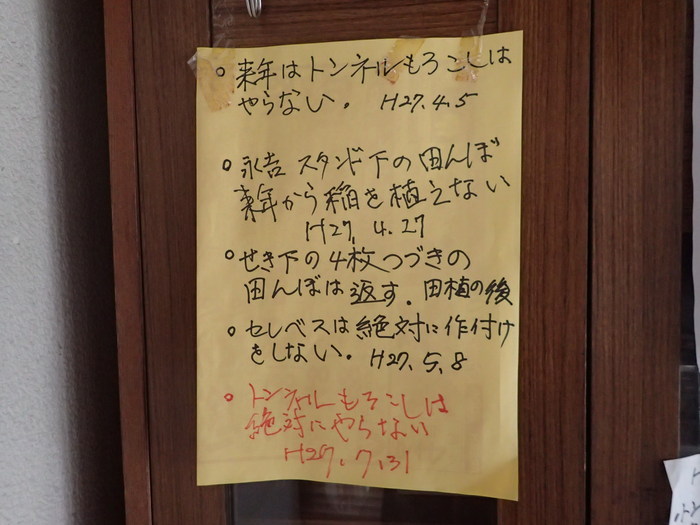 ○ 来年はトンネルもろこしは
やらない。 H27.4.5
○ 永吉 スタンド下の田んぼ
来年から稲を植えない
H27.4.27
○ せき下の4枚つづきの
田んぼは返す。田植の後
○ セレベスは絶対に作付け
をしない。 H27.5.8
○ トンネルもろこしは
絶対にやらない
H27.7.31